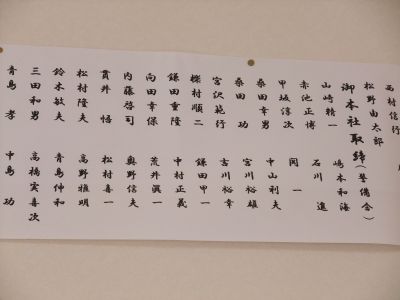 西村信行
松野由太郎
御本社取締(警備会)
山崎精一 嶋本和海
赤池正博 石川進
甲坂淳次 関一
桑田幸男 中山利夫
桑田功 宮川裕雄
宮沢範行 吉川裕幸
櫟村順二 鎌田甲一
鎌田重隆 中村正義
向田幸保 荒井眞一
内藤啓司 奥野信夫
貫井悟 松村喜一
松村隆夫 高野雅明
鈴木敏夫 青島伸和
三田和男 高橋雲喜次
青島孝 中島功